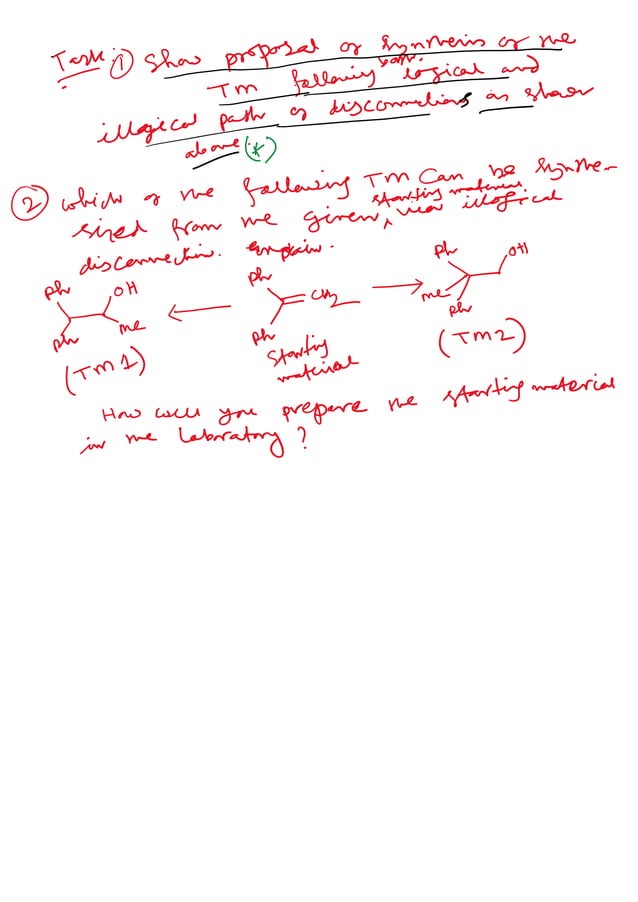 Task: ① Show proposal of synthesis of the
TM following both logical and
illogical path of disconnections as shown
above (*)
② which of the following TM can be synthe-
sized from the given starting material via illogical
disconnection. Explain.
Ph OH Ph CH2 Ph OH
Ph Me Ph Me Ph
(TM1) Starting material (TM2)
How will you prepare the starting material
in the laboratory?